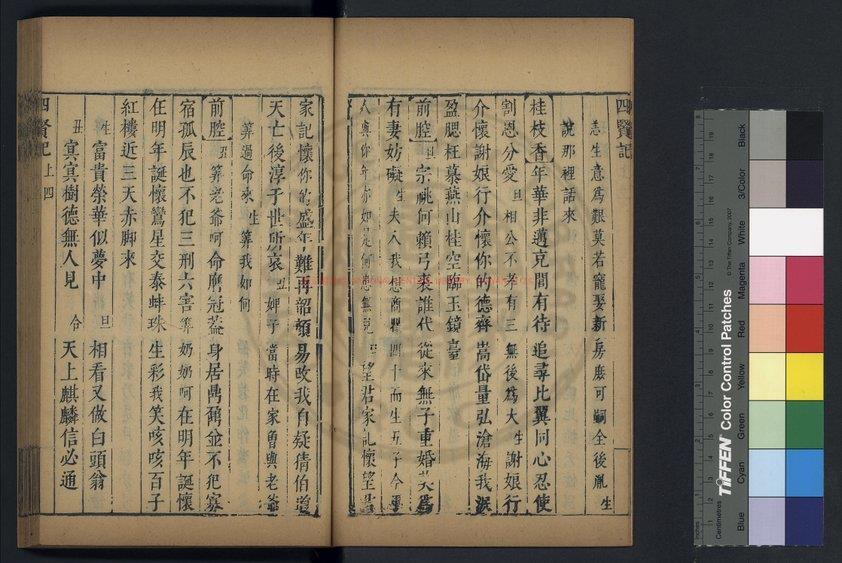 四賢記
恙生意爲艱莫若寵娶新房庶可嗣全後胤生
說那裡話來
桂枝香年華非邁克間有待追尋比翼同心忍使
割恩分愛旦相公不孝有三無後爲大生謝娘行
介懷謝娘行介懷你的德齊嵩岱量弘滄海我泯
盈腮枉慕燕山桂空臨玉鏡臺
前腔旦宗祧何賴弓裘誰代從來無子重婚
有妻妨礙生夫人我想商瞿四十而生五子今
人與你年亦如是何患無兒旦望君家記懷望君
家記懷你的盛年難再韶顏易改我自疑猜伯道
天亡後淳于世所哀丑婢子當時在家魯與老爺
算過命來生算我如何
前腔丑算老爺呵命膺冠蓋身居鼎鼐並不犯寡
宿孤辰也不犯三刑六害算奶奶呵在明年誕懷
在明年誕懷鸞星交泰蚌珠生彩我笑咳咳百子
紅樓近三天赤脚來
生富貴榮華似夢中 旦相看又做白頭翁
丑寞寞樹德無人見 合天上麒麟信必通
四賢記 上 四
TIFFEN Color Control Patches
© The Tiffen Company, 2007
Inches
Centimetres
Blue
Cyan
Green
Yellow
Red
Magenta
White
3/Color
Black